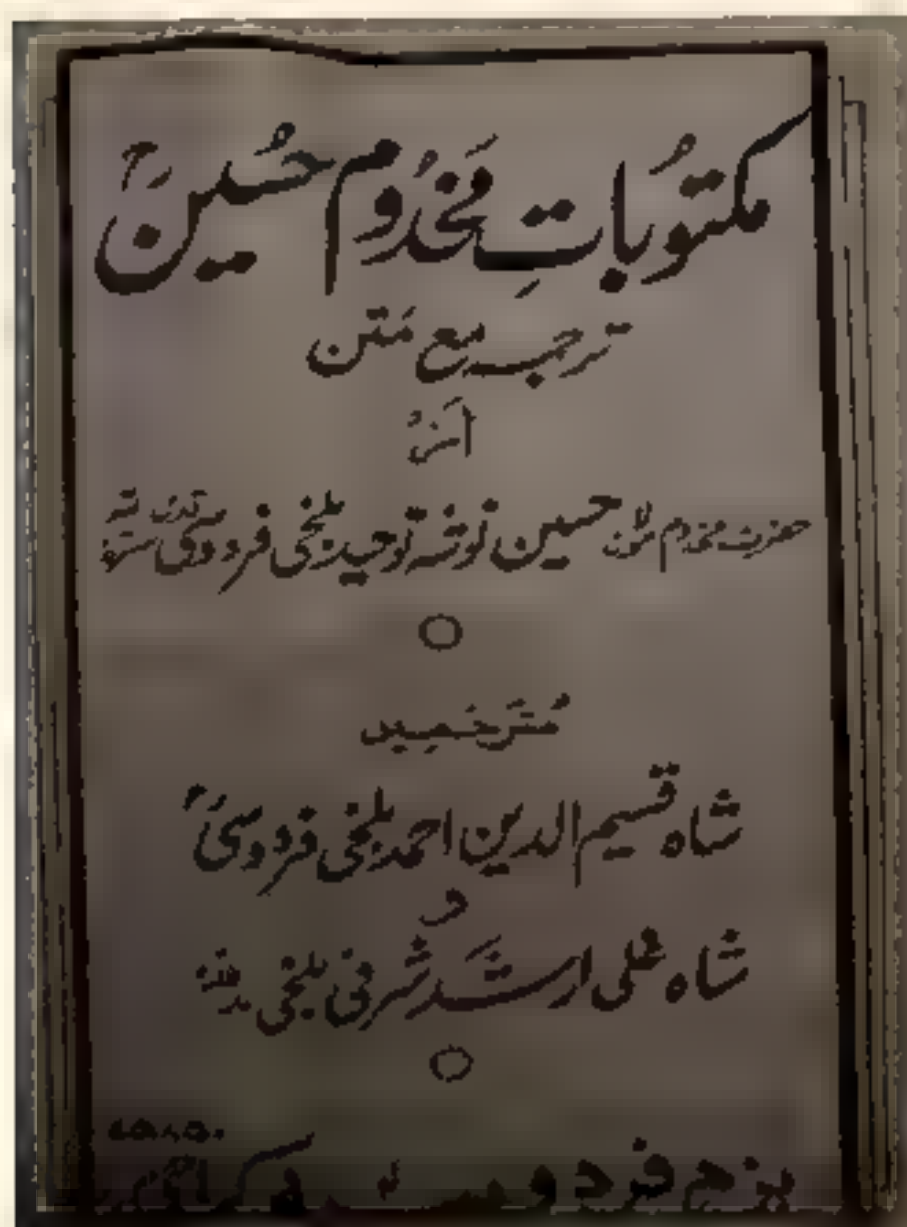 مکتوُباتِ مَخدُوم حسُینؒ
ترجمہ مع مَتن
اَز
حضرت مخدوم مولانا حسین نوشۂ توحید بلخی فردوسی قدس سرہ
مُترجمین
شاہ قسیم الدین احمد بلخی فردوسیؒ
و
شاہ علی ارشد شرفی بلخی مدظلہ
بزم فردوسیہ